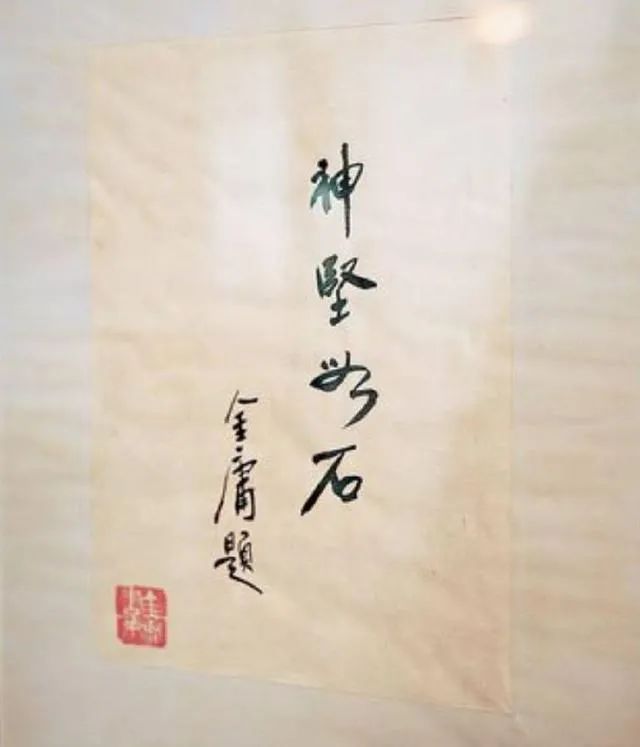 神堅如石
金庸題